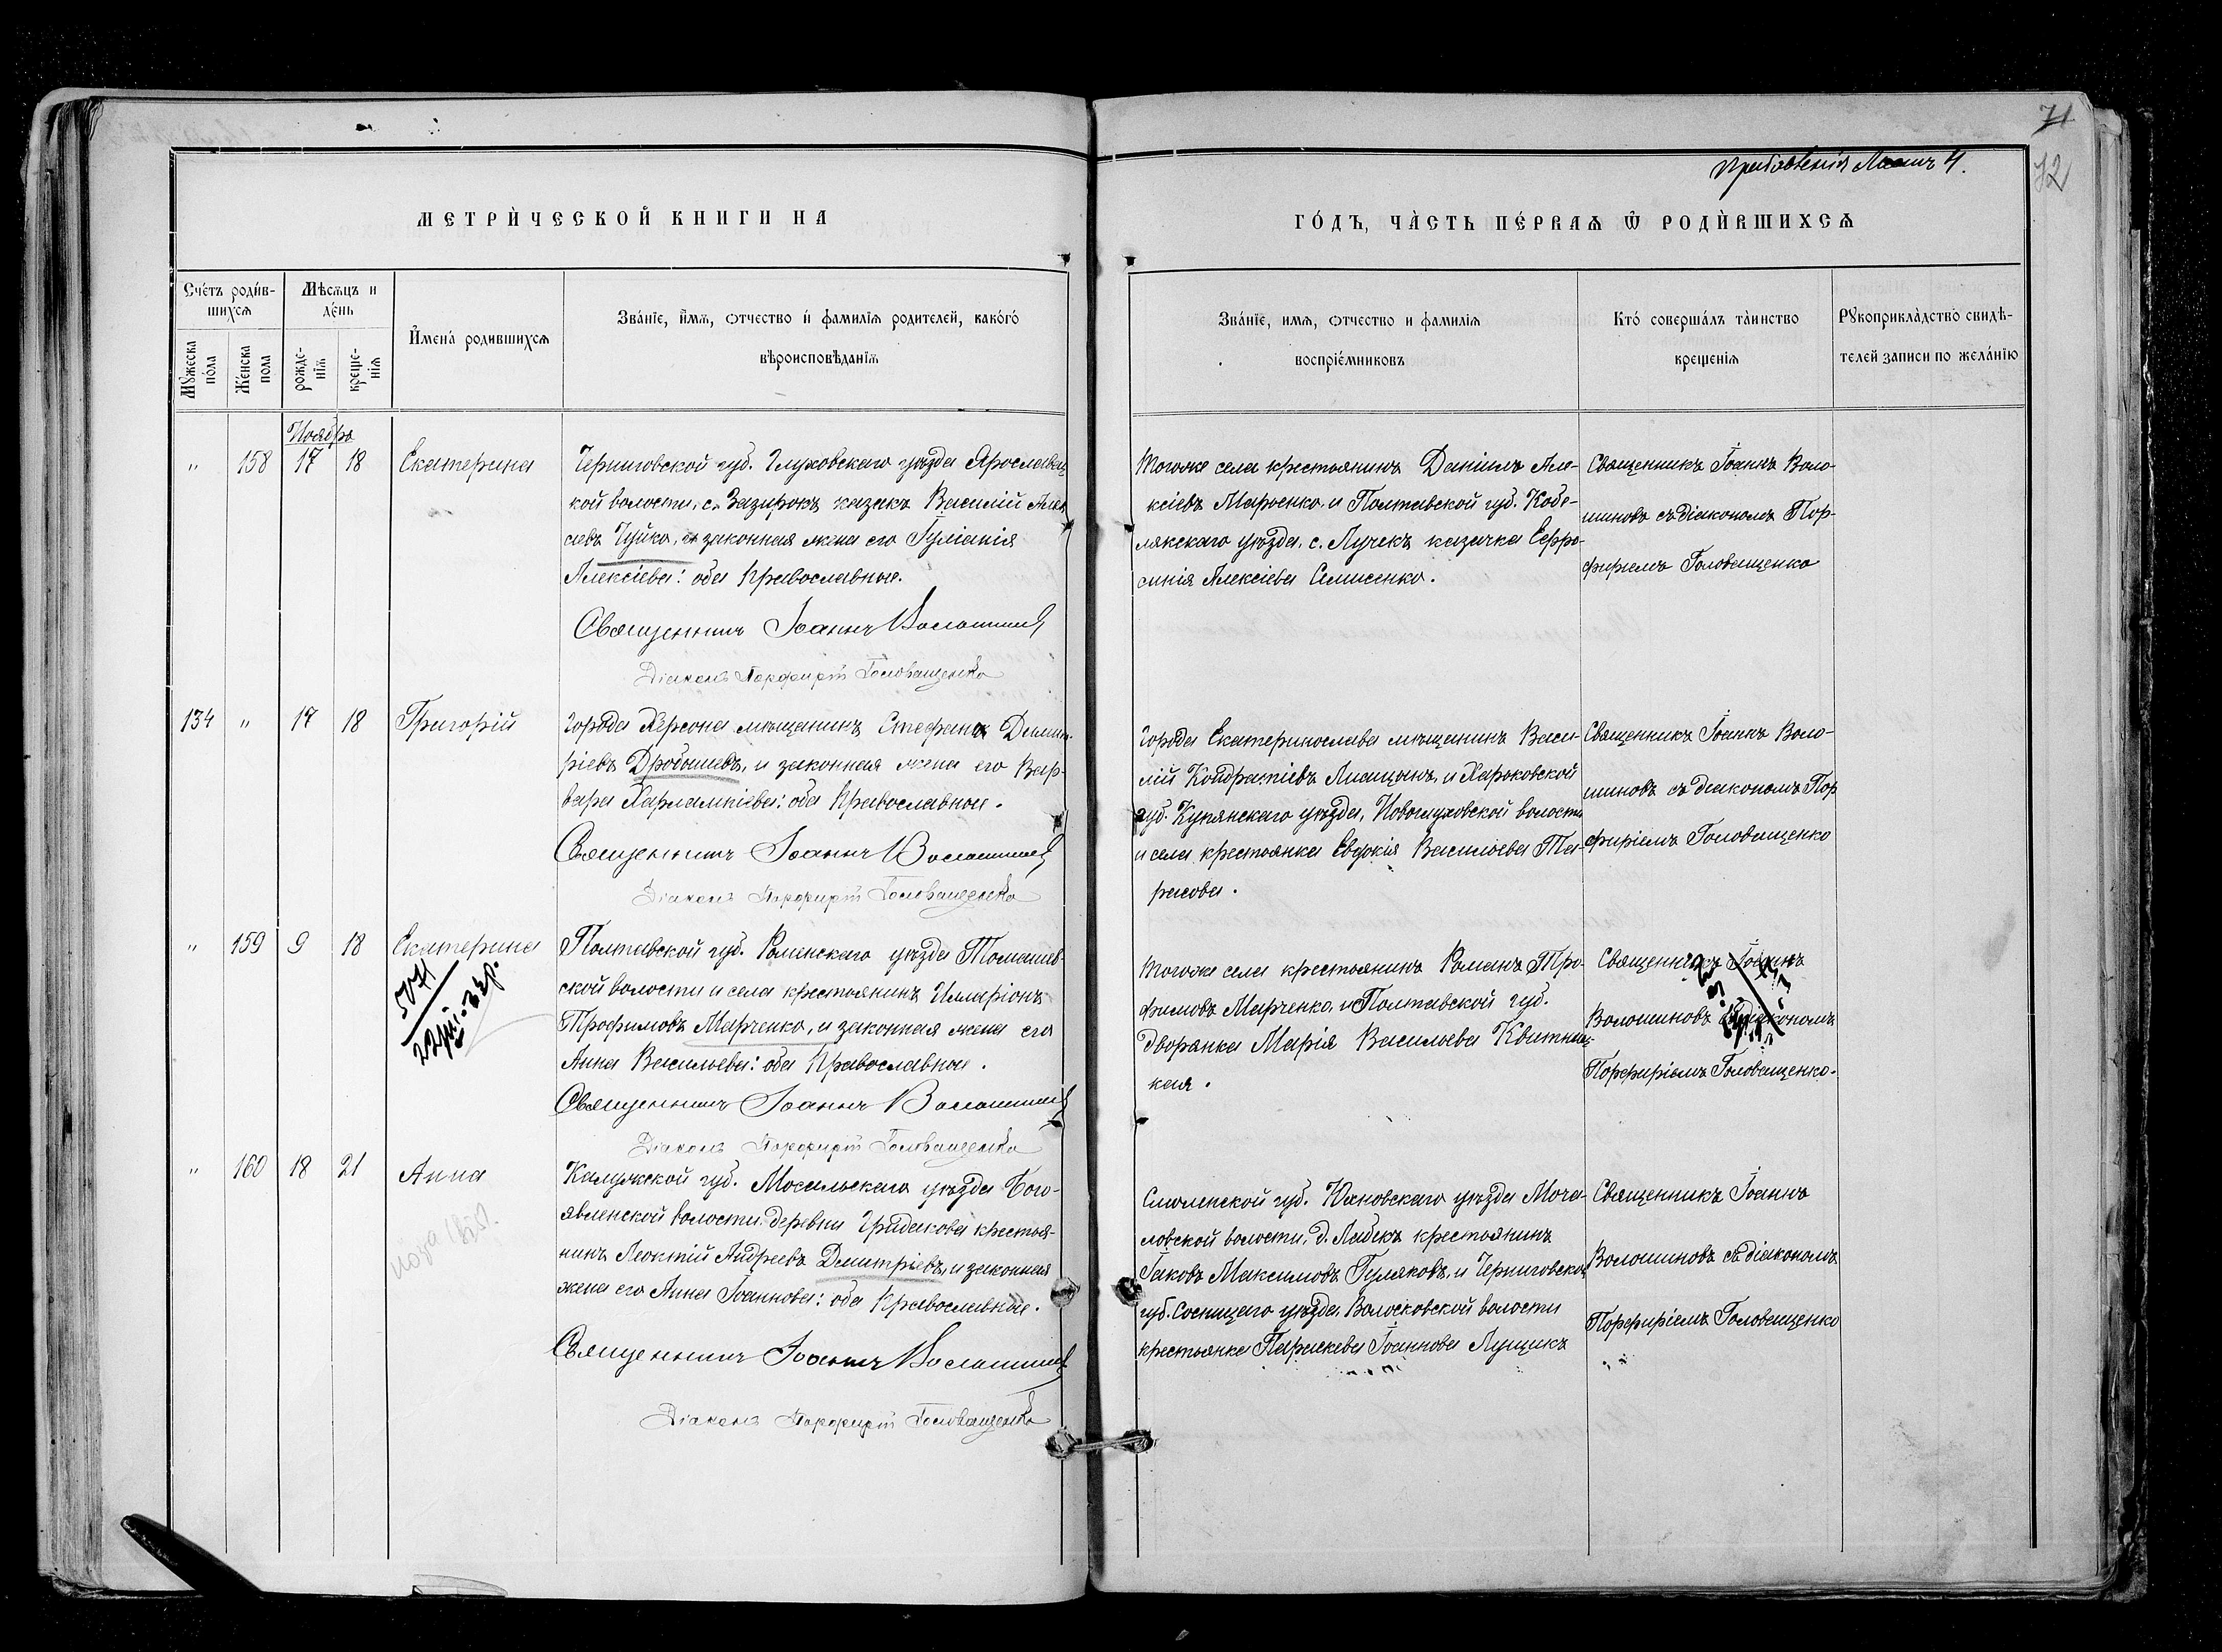 71
72
МЕТРИ́ЧЕСКОЙ КНИГИ НА
ГО́ДЪ, ЧА́СТЬ ПЕ́РВАѦ Ѡ҆ РОДИ́ВШИХСѦ
Сче́тъ роди́в-
шихсѧ
Мѣсѧцъ и
де́нь
Мꙋжеска
по́ла
Же́нска
пола
рожде-
нїѧ
креще-
нїѧ
И҆мена́ родившихсѧ
Зва́нїе, и҆мѧ, ѻтчество и҆ фамилїѧ родителей, како́гѡ
вѣроисповѣданїѧ
Зва́нїе, имѧ, ѻтчество и фамилїѧ
воспрїе́мниковъ
Кто́ соверша́лъ та́инство
крещенїѧ
Рꙋкоприкла́дство свидѣ-
телей записи по жела́нїю
Ноября
" 158 17 18 Екатерина
Черниговской губ. Глуховскаго уѣзда Ярославец
кой волости, с. Зазирокъ казакъ Василій
Чуйко, и законная жена его Іуліанія
Алексіева: оба Православные.
Священникъ Іоаннъ Волошинов
Діаконъ Порфирій Головащенко
Тогоже села крестьянинъ Даніилъ Але-
ксіевъ Марченко, и Полтавской губ. Кобе-
лякскаго уѣзда, с. Лучекъ казачка Евфро-
синія Алексіева Семисенко.
Священникъ Іоаннъ Воло-
шиновъ съ діакономъ Пор-
фиріемъ Головащенко
134 " 17 18 Григорій
Города Херсона мѣщанинъ Стефанъ Димит-
ріевъ Дробышевъ, и законная жена его Вар-
вара Харлампіева: оба Православные.
Священникъ Іоаннъ Волошинов
Діаконъ Порфирій Головащенко
Города Екатеринослава мѣщанинъ Васи-
лій Кондратіевъ и Харьковской
губ. Купянскаго уѣзда, Новоглуховской волости
и села крестьянка Евдокія Васильева Та-
расова.
Священникъ Іоаннъ Воло-
шиновъ съ діакономъ Пор
фиріемъ Головащенко
" 159 9 18 Екатерина
Полтавской губ. Роменскаго уѣзда Томашев-
ской волости и села крестьянинъ Илларіонъ
Трофимовъ Марченко, и законная жена его
Анна Васильева: оба Православные.
Священникъ Іоаннъ Волошинов
Діаконъ Порфирій Головащенко
Тогоже села крестьянинъ Романъ Тро-
фимовъ Марченко, и Полтавской губ.
дворянка Марія Васильева Квитниц-
кая.
Священникъ Іоаннъ
Волошиновъ съ діакономъ
Порфиріемъ Головащенко.
" 160 18 21 Анна
Калужской губ. Мосальскаго уѣзда Бого-
явленской волости деревни Гридакова крестья-
нинъ Леонтій Андреевъ Димитріевъ, и законная
жена его Анна Іоаннова: оба Православные.
Священникъ Іоаннъ Волошинов
Діаконъ Порфирій Головащенко
Смоленской губ. Юхновскаго уѣзда Моча-
ловской волости, д. крестьянинъ
Іаковъ Максимовъ Гуляковъ, и Черниговской
губ. Сосницаго уѣзда, Волосковской волости
крестьянка Параскева Іоаннова Лущикъ
Священникъ Іоаннъ
Волошиновъ съ діакономъ
Порфиріемъ Головащенко